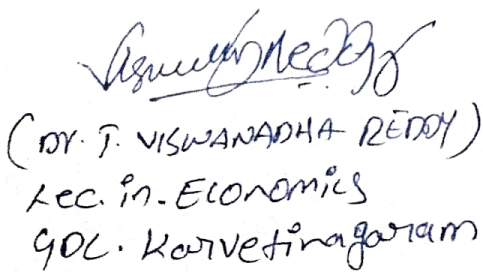 (Dr. T. VISWANADHA REDDY)
Lec. in. Economics
GDC. Karvetinagaram